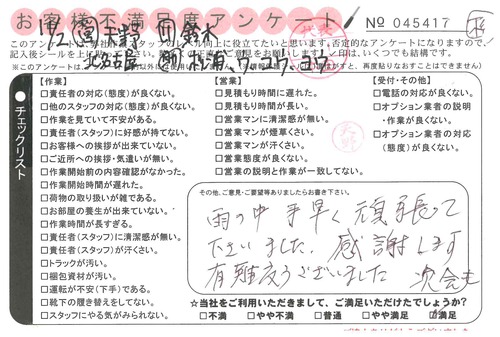 お客様不満足度アンケート
No 045417
このアンケートは、弊社
スタッフのレベル向上に役立てたいと思います。否定的なアンケートになりますので、
記入後シールを上に貼って下さい。
「印」は、いくつでも結構です。
【作業】
□責任者の対応(態度)が良くない。
□他のスタッフの対応(態度)が良くない。
□作業を見ていて不安がある。
□責任者(スタッフ)に好感が持てない。
□お客様への挨拶が出来ていない。
□ご近所への挨拶・気遣いが無い。
□作業開始前の内容確認がなかった。
□作業開始時間が遅れた。
□荷物の取り扱いが雑である。
□お部屋の養生が出来ていない。
□作業時間が長すぎる。
□責任者(スタッフ)に清潔感が無い。
□責任者(スタッフ)が汗くさい。
□トラックが汚い。
□梱包資材が汚い。
□運転が不安(下手)である。
□靴下の履き替えをしてない。
□スタッフにやる気がみられない。
【営業】
□見積もり時間に遅れた。
□見積もり時間が長い。
□営業マンに清潔感が無い。
□営業マンが煙草くさい。
□営業マンが汗くさい。
□営業態度が良くない。
□営業の説明と作業が一致してない。
【受付・その他】
□電話の対応が良くない。
□オプション業者の説明
・作業が良くない。
□オプション業者の対応
(態度)が良くない。
チェックリスト
その他、ご意見・ご要望等ありましたらお書き下さい。
雨の中 手早く 頑張って
下さいました。感謝します
有難うございました 次会も
☆当社をご利用いただきまして、ご満足いただけたでしょうか?
□不満 □やや不満 □普通 □やや満足 □満足